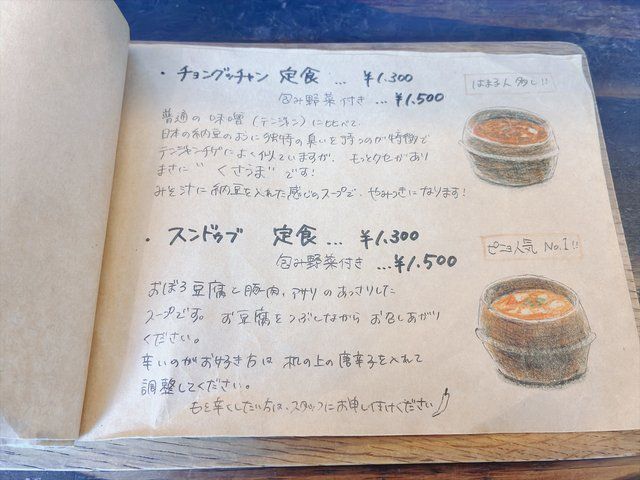 ・チョングッチャン 定食 … ¥1.300
包み野菜付き … ¥1.500
はまる人 多し!!
普通の 味噌 (テンジャン) に比べて
日本の納豆のように独特の臭いを持つのが特徴で
テンジャンチゲによく似ていますが、もっとクセがあり
まさに "くさうま" です!
みそ汁に納豆を入れた感じのスープで、やみつきになります!
・スンドゥブ 定食 … ¥1.300
包み野菜付き … ¥1.500
人気 No.1!!
おぼろ豆腐と豚肉、アサリのあっさりした
スープです。お豆腐をつぶしながら お召しあがり
ください。
辛いのがお好き方は 机の上の唐辛子を入れて
調整してください。
もと辛くしたい方は、スタッフにお申し付けください